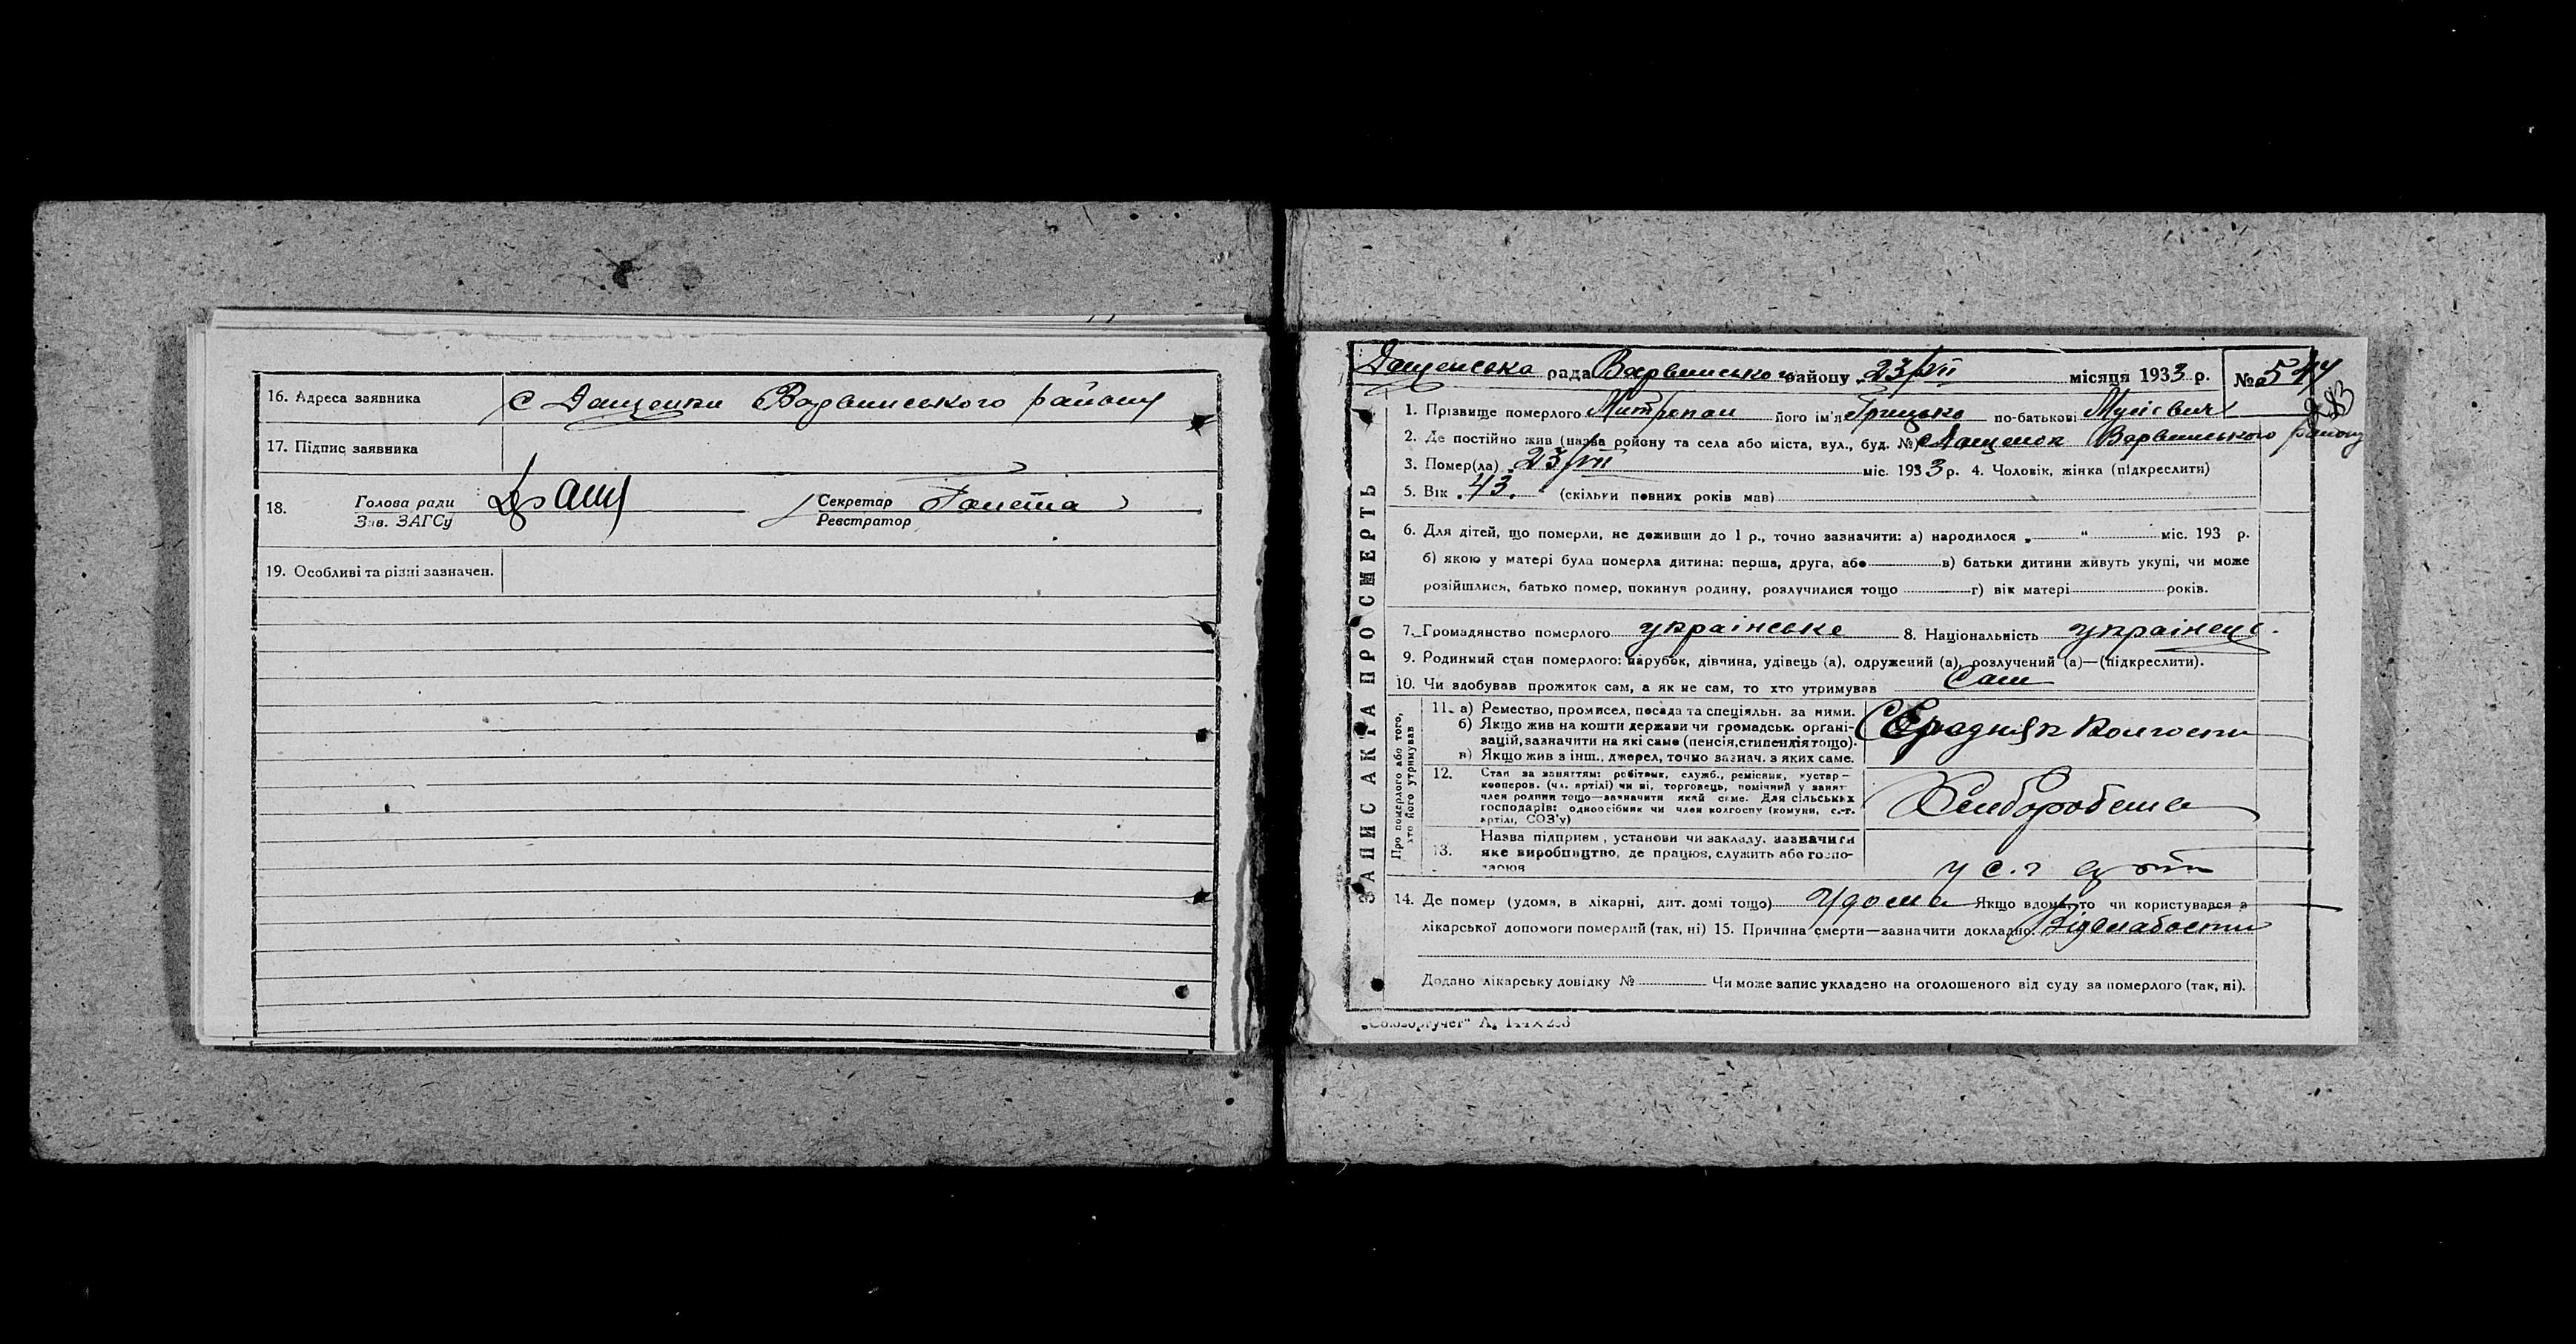 16. Адреса заявника с Дащенки Варвинського району
17. Підпис заявника
18. Голова ради Секретар Ганета
Зав. ЗАГСу Реєстратор
19. Особливі та різні зазначен.
ЗАПИС АКТА ПРО СМЕРТЬ
Дащенська рада Варвинського району 23/VII місяця 1933 р. №
1. Прізвище померлого Митропан його ім'я Грицько по-батькові Мусієвич
2. Де постійно жив (назва району та села або міста, вул., буд. №) с Дащенки Варвинського району
3. Помер(ла) „23/VII міс. 1933 р. 4. Чоловік, жінка (підкреслити)
5. Вік „43. (скільки повних років мав)
6. Для дітей, що померли, не доживши до 1 р., точно зазначити: а) народилося „ “ міс. 193 р.
б) якою у матері була померла дитина: перша, друга, або в) батьки дитини живуть укупі, чи може
розійшлися, батько помер, покинув родину, розлучилися тощо г) вік матері років.
7. Громадянство померлого українське 8. Національність українець.
9. Родинний стан померлого: парубок, дівчина, удівець (а), одружений (а), розлучений (а)—(підкреслити).
10. Чи здобував прожиток сам, а як не сам, то хто утримував Сам
Про померлого або того, хто його утримував
11. а) Ремество, промисел, посада та спеціяльн. за ними.
б) Якщо жив на кошти держави чи громадськ. органі-
зацій, зазначити на які саме (пенсія, стипендія тощо).
в) Якщо жив з інш. джерел, точно зазнач. з яких саме.
Середняк колгоспн
12. Стан за заняттям: робітник, служб., ремісник, кустар—
кооперов. (чл. артілі) чи ні, торговець, помічний у занят.
член родини тощо—зазначити який саме. Для сільських
господарів: одноосібник чи член колгоспу (комуни, с.-г.
артілі, СОЗ'у)
Хлібороб
13. Назва підприєм., установи чи закладу, зазначити
яке виробництво, де працює, служить або госпо-
дарює
у с.г арт
14. Де помер (удома, в лікарні, дит. домі тощо) Удома Якщо вдома, то чи користувався з
лікарської допомоги померлий (так, ні) 15. Причина смерти—зазначити докладно: Від слабости
Додано лікарську довідку № Чи може запис укладено на оголошеного від суду за померлого (так, ні).
„Союзоргучет“